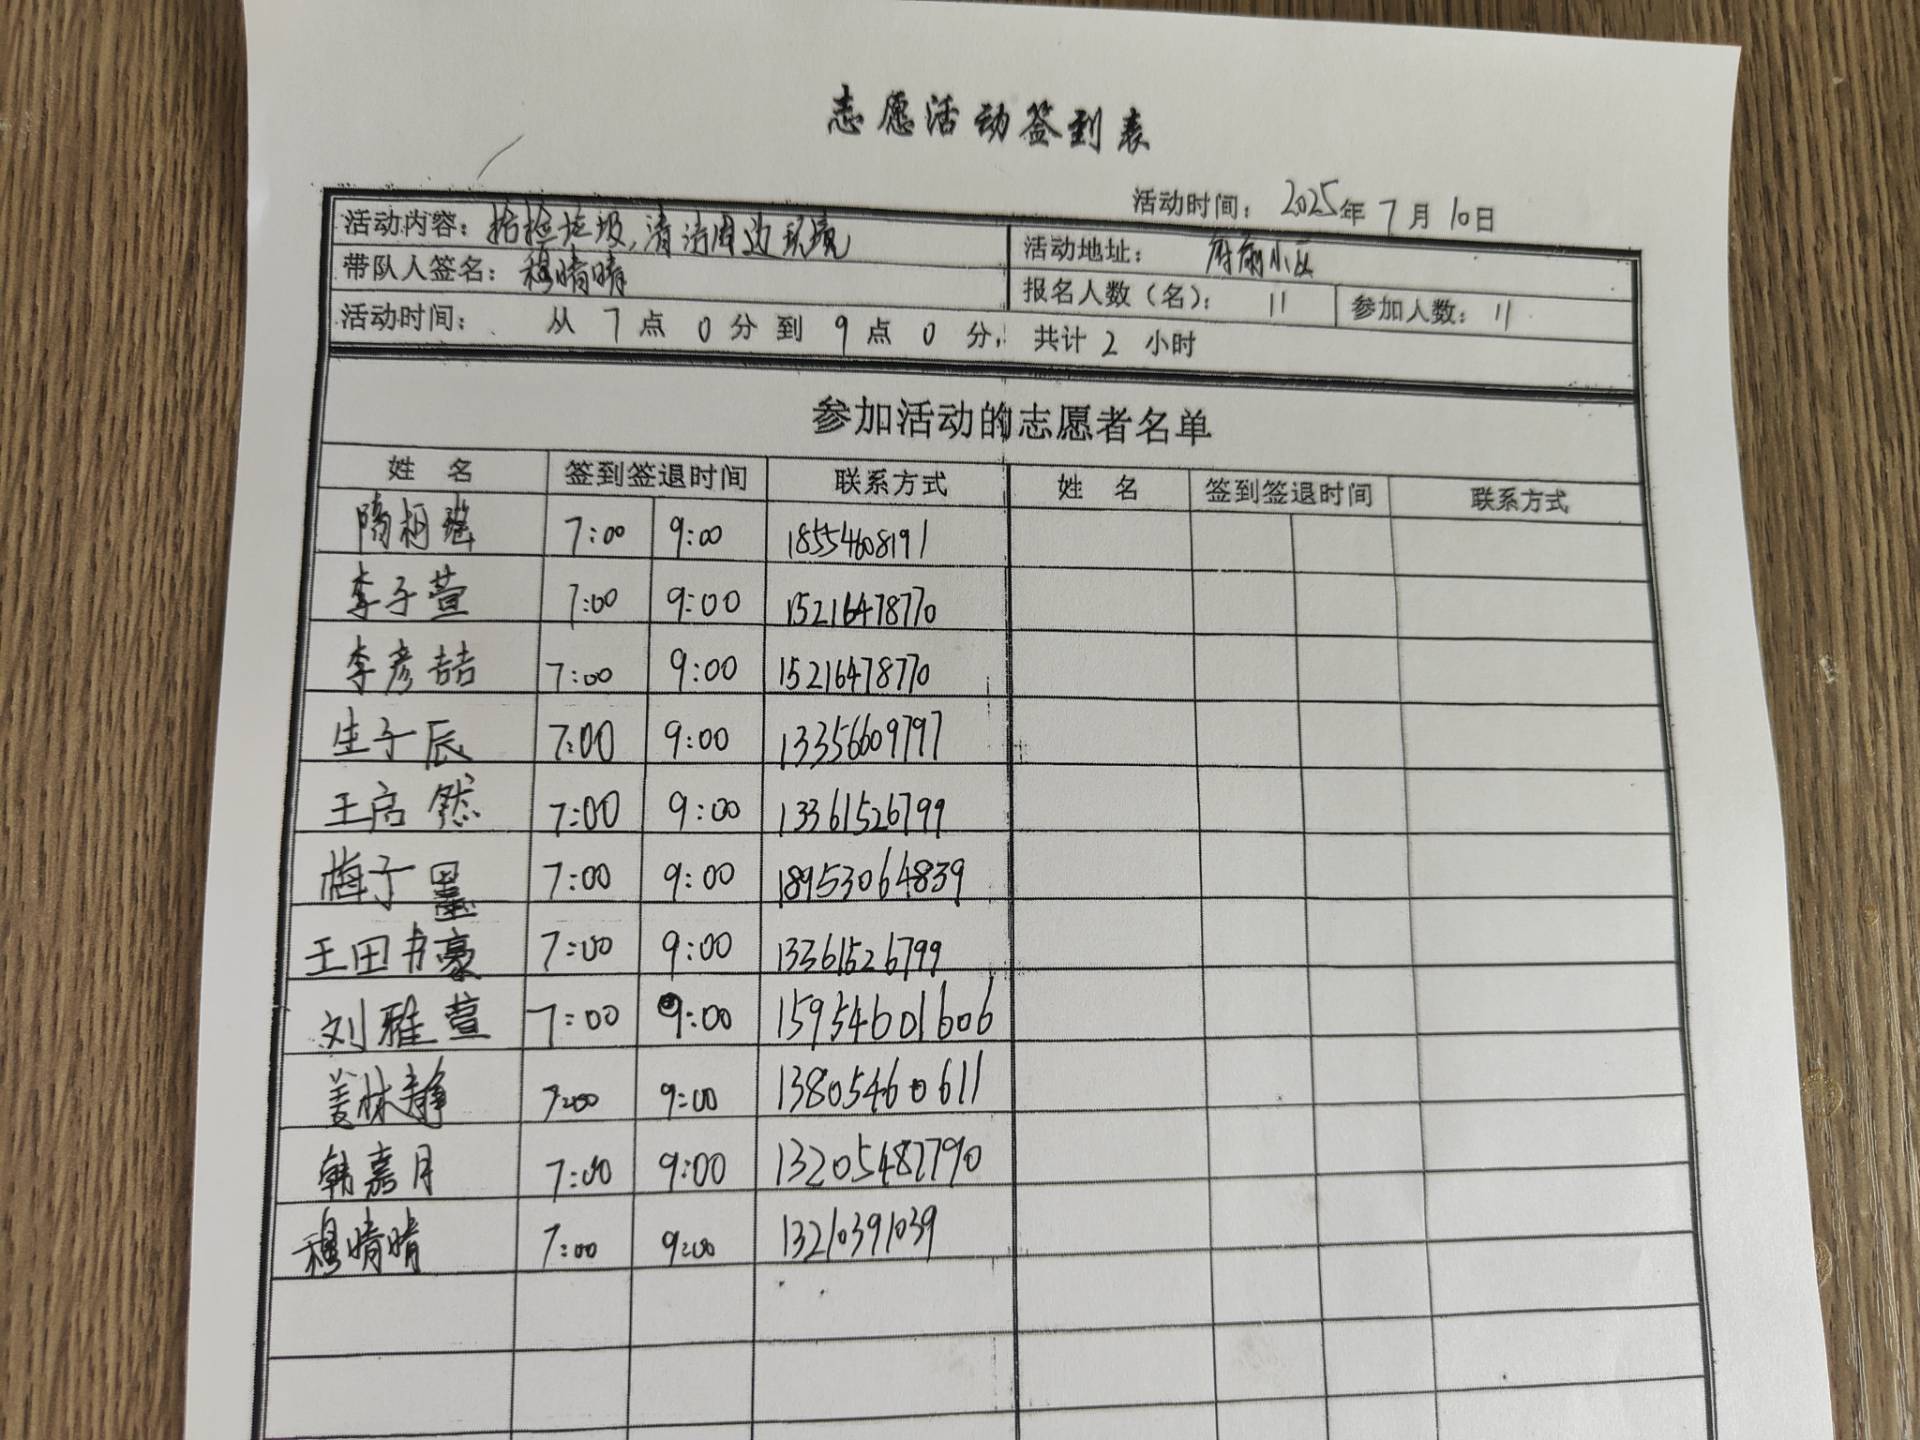 志愿活动签到表
活动时间：2025年7月10日
活动内容：拾捡垃圾，清洁周边环境 活动地址：府前小区
带队人签名：穆晴晴 报名人数（名）：11 参加人数：11
活动时间：从7点0分到9点0分，共计2小时
参加活动的志愿者名单
姓名 签到签退时间 联系方式 姓名 签到签退时间 联系方式
隋柯瑶 7:00 9:00 18554608191
李子萱 7:00 9:00 15216478770
李彦喆 7:00 9:00 15216478770
生子辰 7:00 9:00 13356609797
王启然 7:00 9:00 13361526799
梅子墨 7:00 9:00 18953064839
王田书豪 7:00 9:00 13361526799
刘雅萱 7:00 9:00 15954601606
姜林静 7:00 9:00 13805460611
韩嘉月 7:00 9:00 13205482790
穆晴晴 7:00 9:00 13210391039